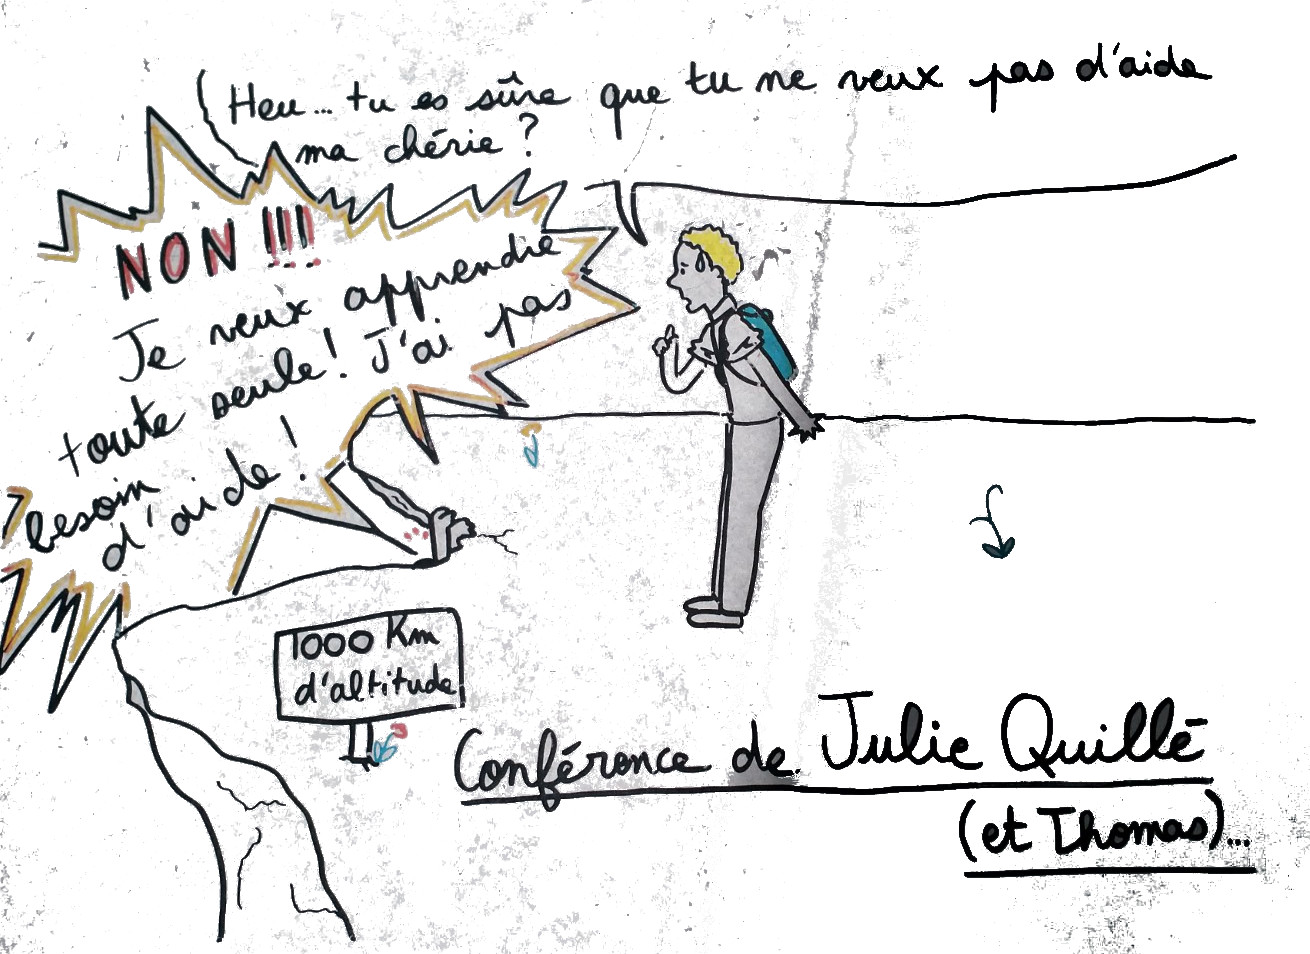 Heu... tu es sûre que tu ne veux pas d'aide
ma chérie ?
NON !!!
Je veux apprendre
toute seule ! J'ai pas
besoin
d'aide !
1000 Km
d'altitude
Conférence de Julie Quillé
(et Thomas)...